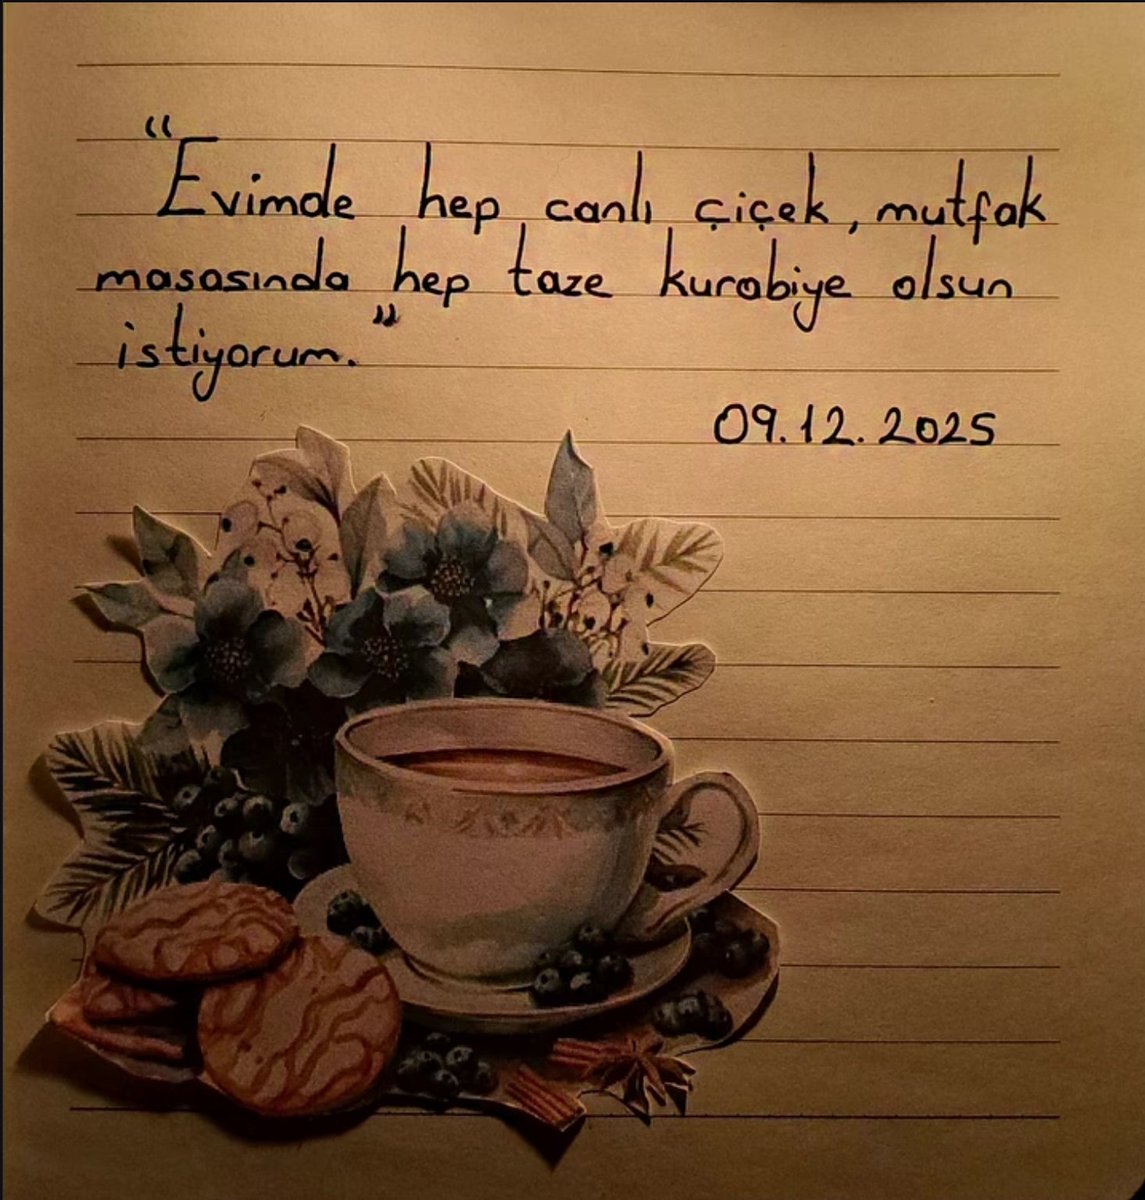 "Evimde hep canlı çiçek, mutfak
masasında hep taze kurabiye olsun
istiyorum."
09.12.2025